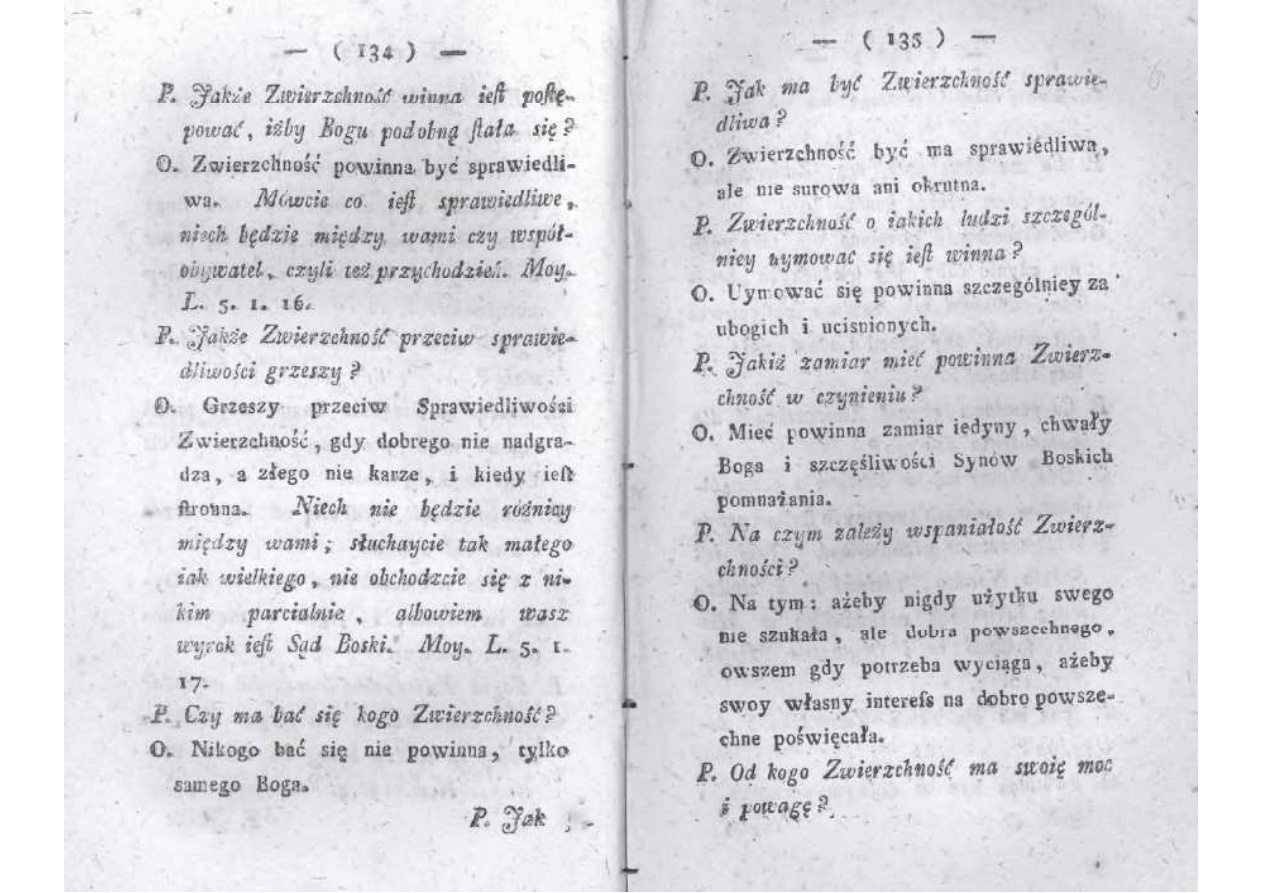 — ( 134 ) —
P. Jakże Zwierzchność winna ieſt poſtę-
pować, iżby Bogu podobną ſtała się?
O. Zwierzchność powinna być sprawiedli-
wa. Mówcie co ieſt sprawiedliwe,
niech będzie między wami czy współ-
obywatel, czyli też przychodzień. Moy.
L. 5. 1. 16.
P. Jakże Zwierzchność przeciw sprawie-
dliwości grzeszy?
O. Grzeszy przeciw Sprawiedliwości
Zwierzchność, gdy dobrego nie nadgra-
dza, a złego nie karze, i kiedy ieſt
ſtronna. Niech nie będzie różnicy
między wami; słuchaycie tak małego
iak wielkiego, nie obchodzcie się z ni-
kim parcialnie, albowiem wasz
wyrok ieſt Sąd Boski. Moy. L. 5. 1.
17.
P. Czy ma bać się kogo Zwierzchność?
O. Nikogo bać się nie powinna, tylko
samego Boga.
P. Jak
— ( 135 ) —
P. Jak ma być Zwierzchność sprawie-
dliwa?
O. Zwierzchność być ma sprawiedliwą,
ale nie surowa ani okrutna.
P. Zwierzchność o iakich ludzi szczegól-
niey uymować się ieſt winna?
O. Uymować się powinna szczególniey za
ubogich i ucisnionych.
P. Jakiż zamiar mieć powinna Zwierz-
chność w czynieniu?
O. Mieć powinna zamiar iedyny, chwały
Boga i szczęśliwości Synów Boskich
pomnażania.
P. Na czym zależy wspaniałość Zwierz-
chności?
O. Na tym: ażeby nigdy użytku swego
nie szukała, ale dobra powszechnego,
owszem gdy potrzeba wyciąga, ażeby
swoy własny intereſs na dobro powsze-
chne poświęcała.
P. Od kogo Zwierzchność ma swoię moc
i powagę?